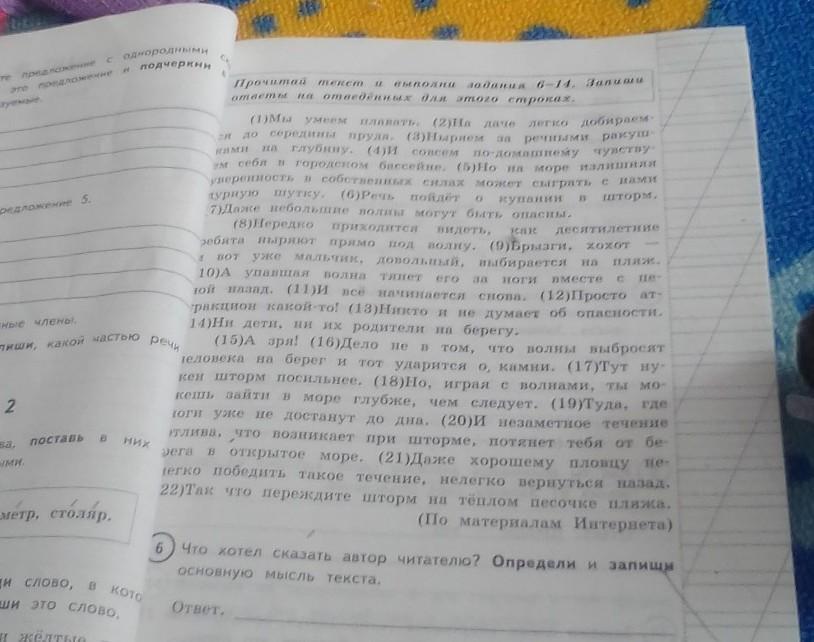 те предложение с однородными
это предложение и подчеркни в
зуемые.
редложение 5.
ные члены.
пиши, какой частью речи
2
ва, поставь в них
ыми.
метр, столяр.
ди слово, в кото
ши это слово.
и жёлтые
Прочитай текст и выполни задания 6–14. Запиши
ответы на отведённых для этого строках.
(1)Мы умеем плавать. (2)На даче легко добираем-
ся до середины пруда. (3)Ныряем за речными ракуш-
ками на глубину. (4)И совсем по-домашнему чувству-
ем себя в городском бассейне. (5)Но на море излишняя
уверенность в собственных силах может сыграть с нами
дурную шутку. (6)Речь пойдёт о купании в шторм.
7)Даже небольшие волны могут быть опасны.
(8)Нередко приходится видеть, как десятилетние
ребята ныряют прямо под волну. (9)Брызги, хохот —
и вот уже мальчик, довольный, выбирается на пляж.
10)А упавшая волна тянет его за ноги вместе с пе-
ной назад. (11)И всё начинается снова. (12)Просто ат-
тракцион какой-то! (13)Никто и не думает об опасности.
14)Ни дети, ни их родители на берегу.
(15)А зря! (16)Дело не в том, что волны выбросят
человека на берег и тот ударится о камни. (17)Тут ну-
жен шторм посильнее. (18)Но, играя с волнами, ты мо-
жешь зайти в море глубже, чем следует. (19)Туда, где
ноги уже не достанут до дна. (20)И незаметное течение
отлива, что возникает при шторме, потянет тебя от бе-
рега в открытое море. (21)Даже хорошему пловцу не-
легко победить такое течение, нелегко вернуться назад.
22)Так что переждите шторм на тёплом песочке пляжа.
(По материалам Интернета)
6 Что хотел сказать автор читателю? Определи и запиши
основную мысль текста.
Ответ.